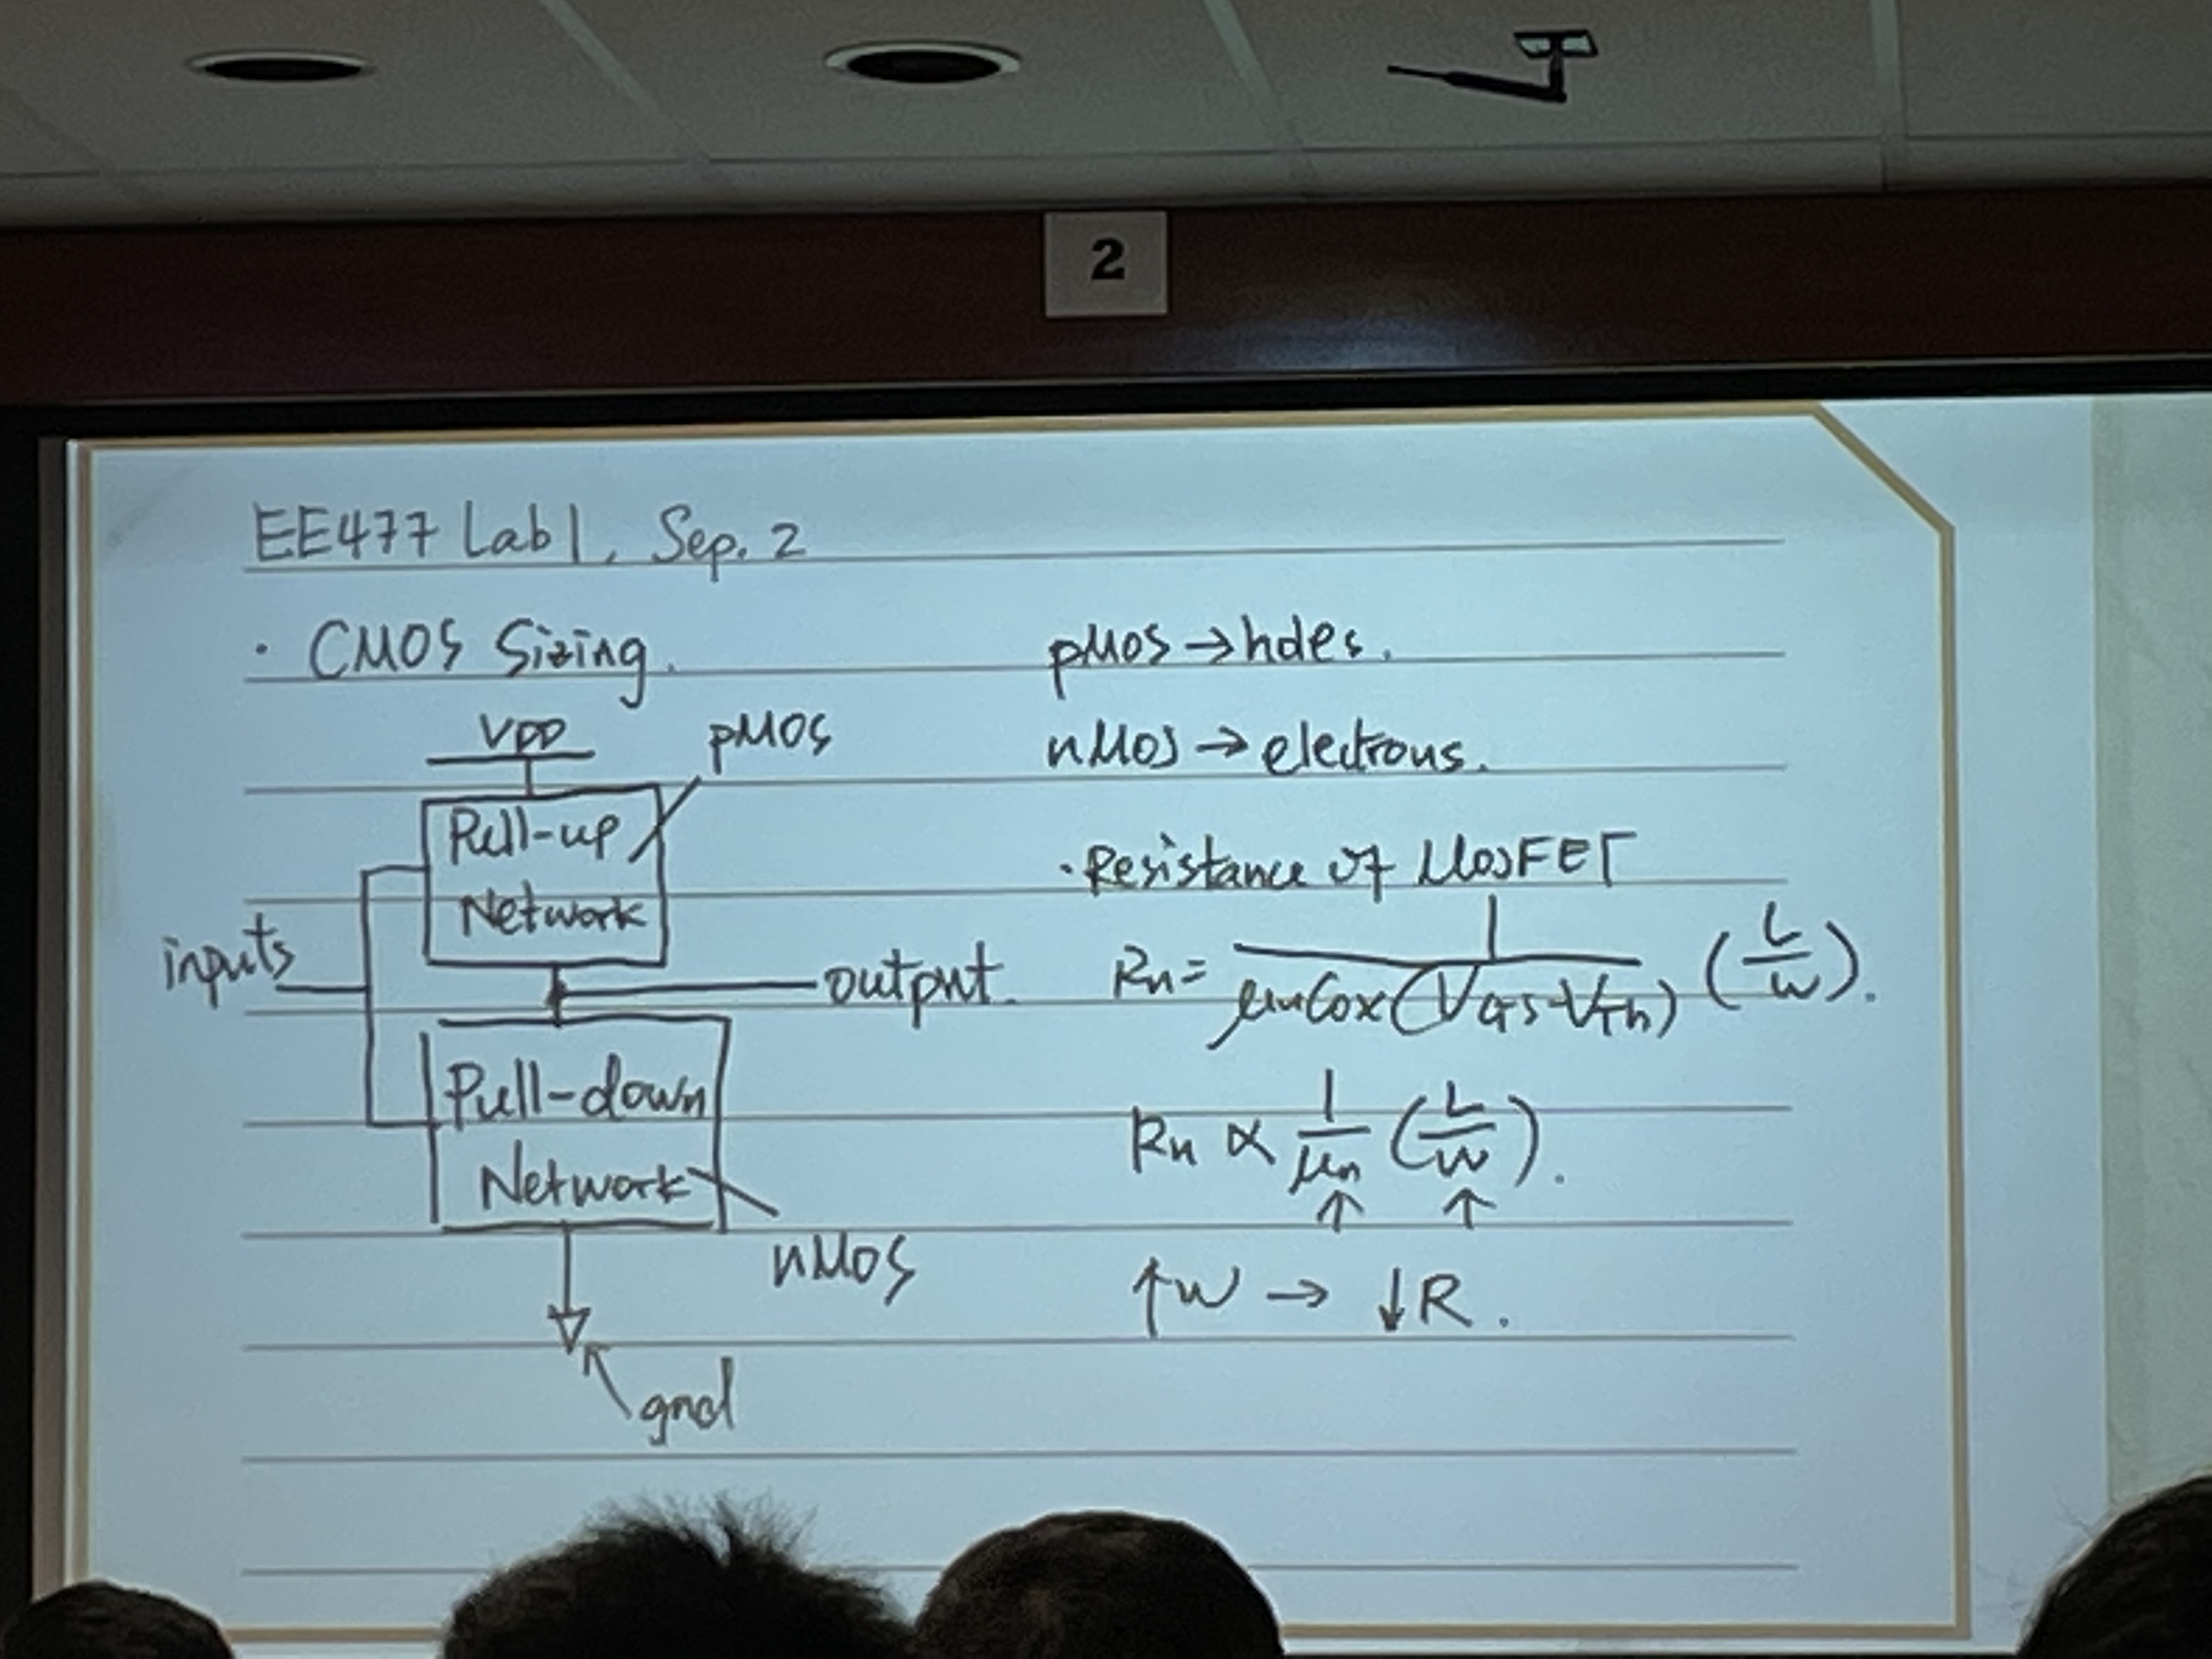 2
EE477 Lab1, Sep. 2
· CMOS Sizing.
VDD
pMOS
Pull-up
Network
inputs
output.
Pull-down
Network
nMOS
gnd
pMOS → holes.
nMOS → electrons.
· Resistance of MOSFET
Rn = 1 / μnCox(VGS-VTh) (L/W).
Rn ∝ 1/μn (L/W).
↑ ↑
↑W → ↓R.